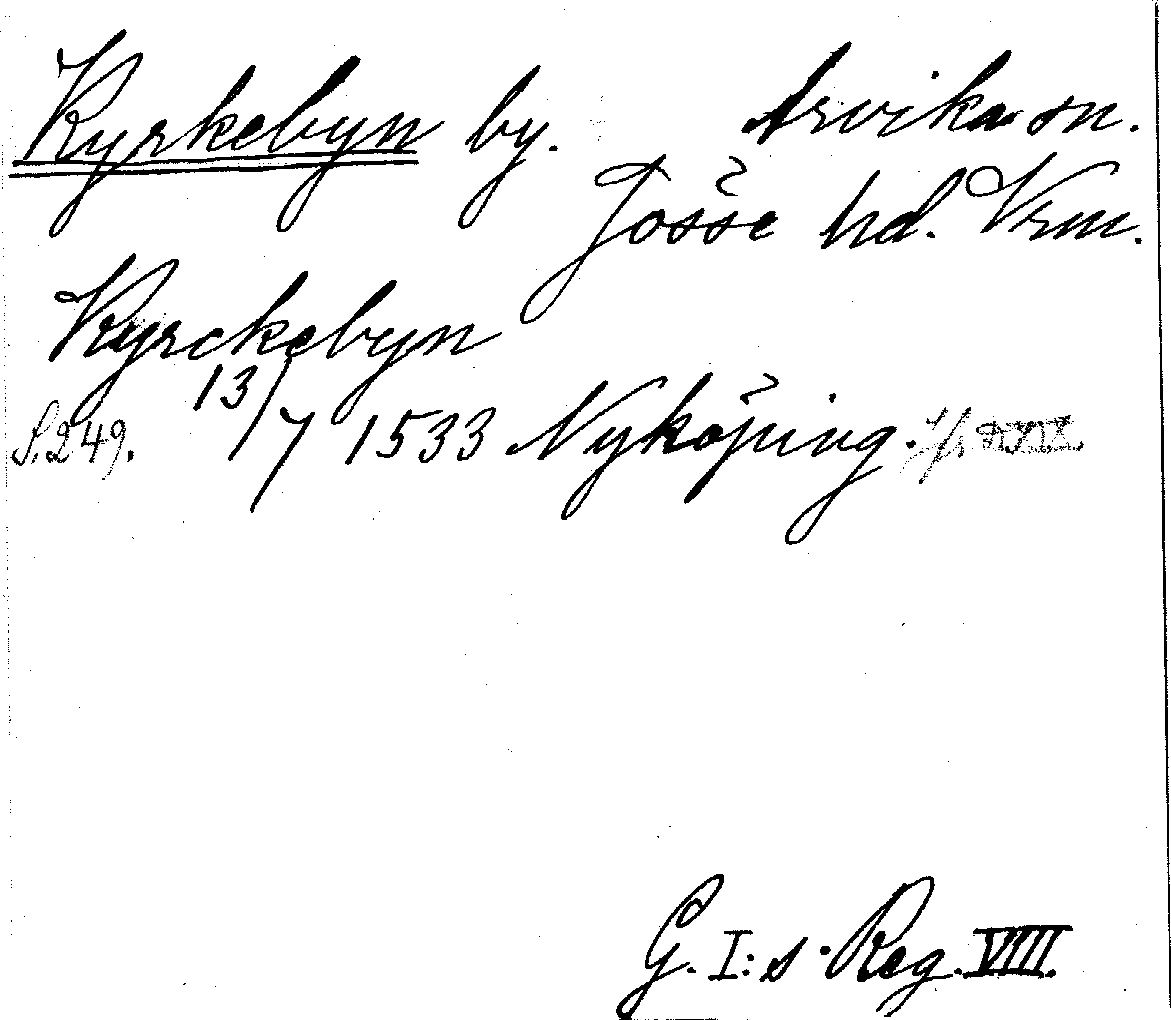 Kyrkebyn by. Arvika sn.
Jösse hd. Vrm.
Kyrckebyn
S. 249. 13/7 1533 Nyköping.
G. I:s Reg. VIII.